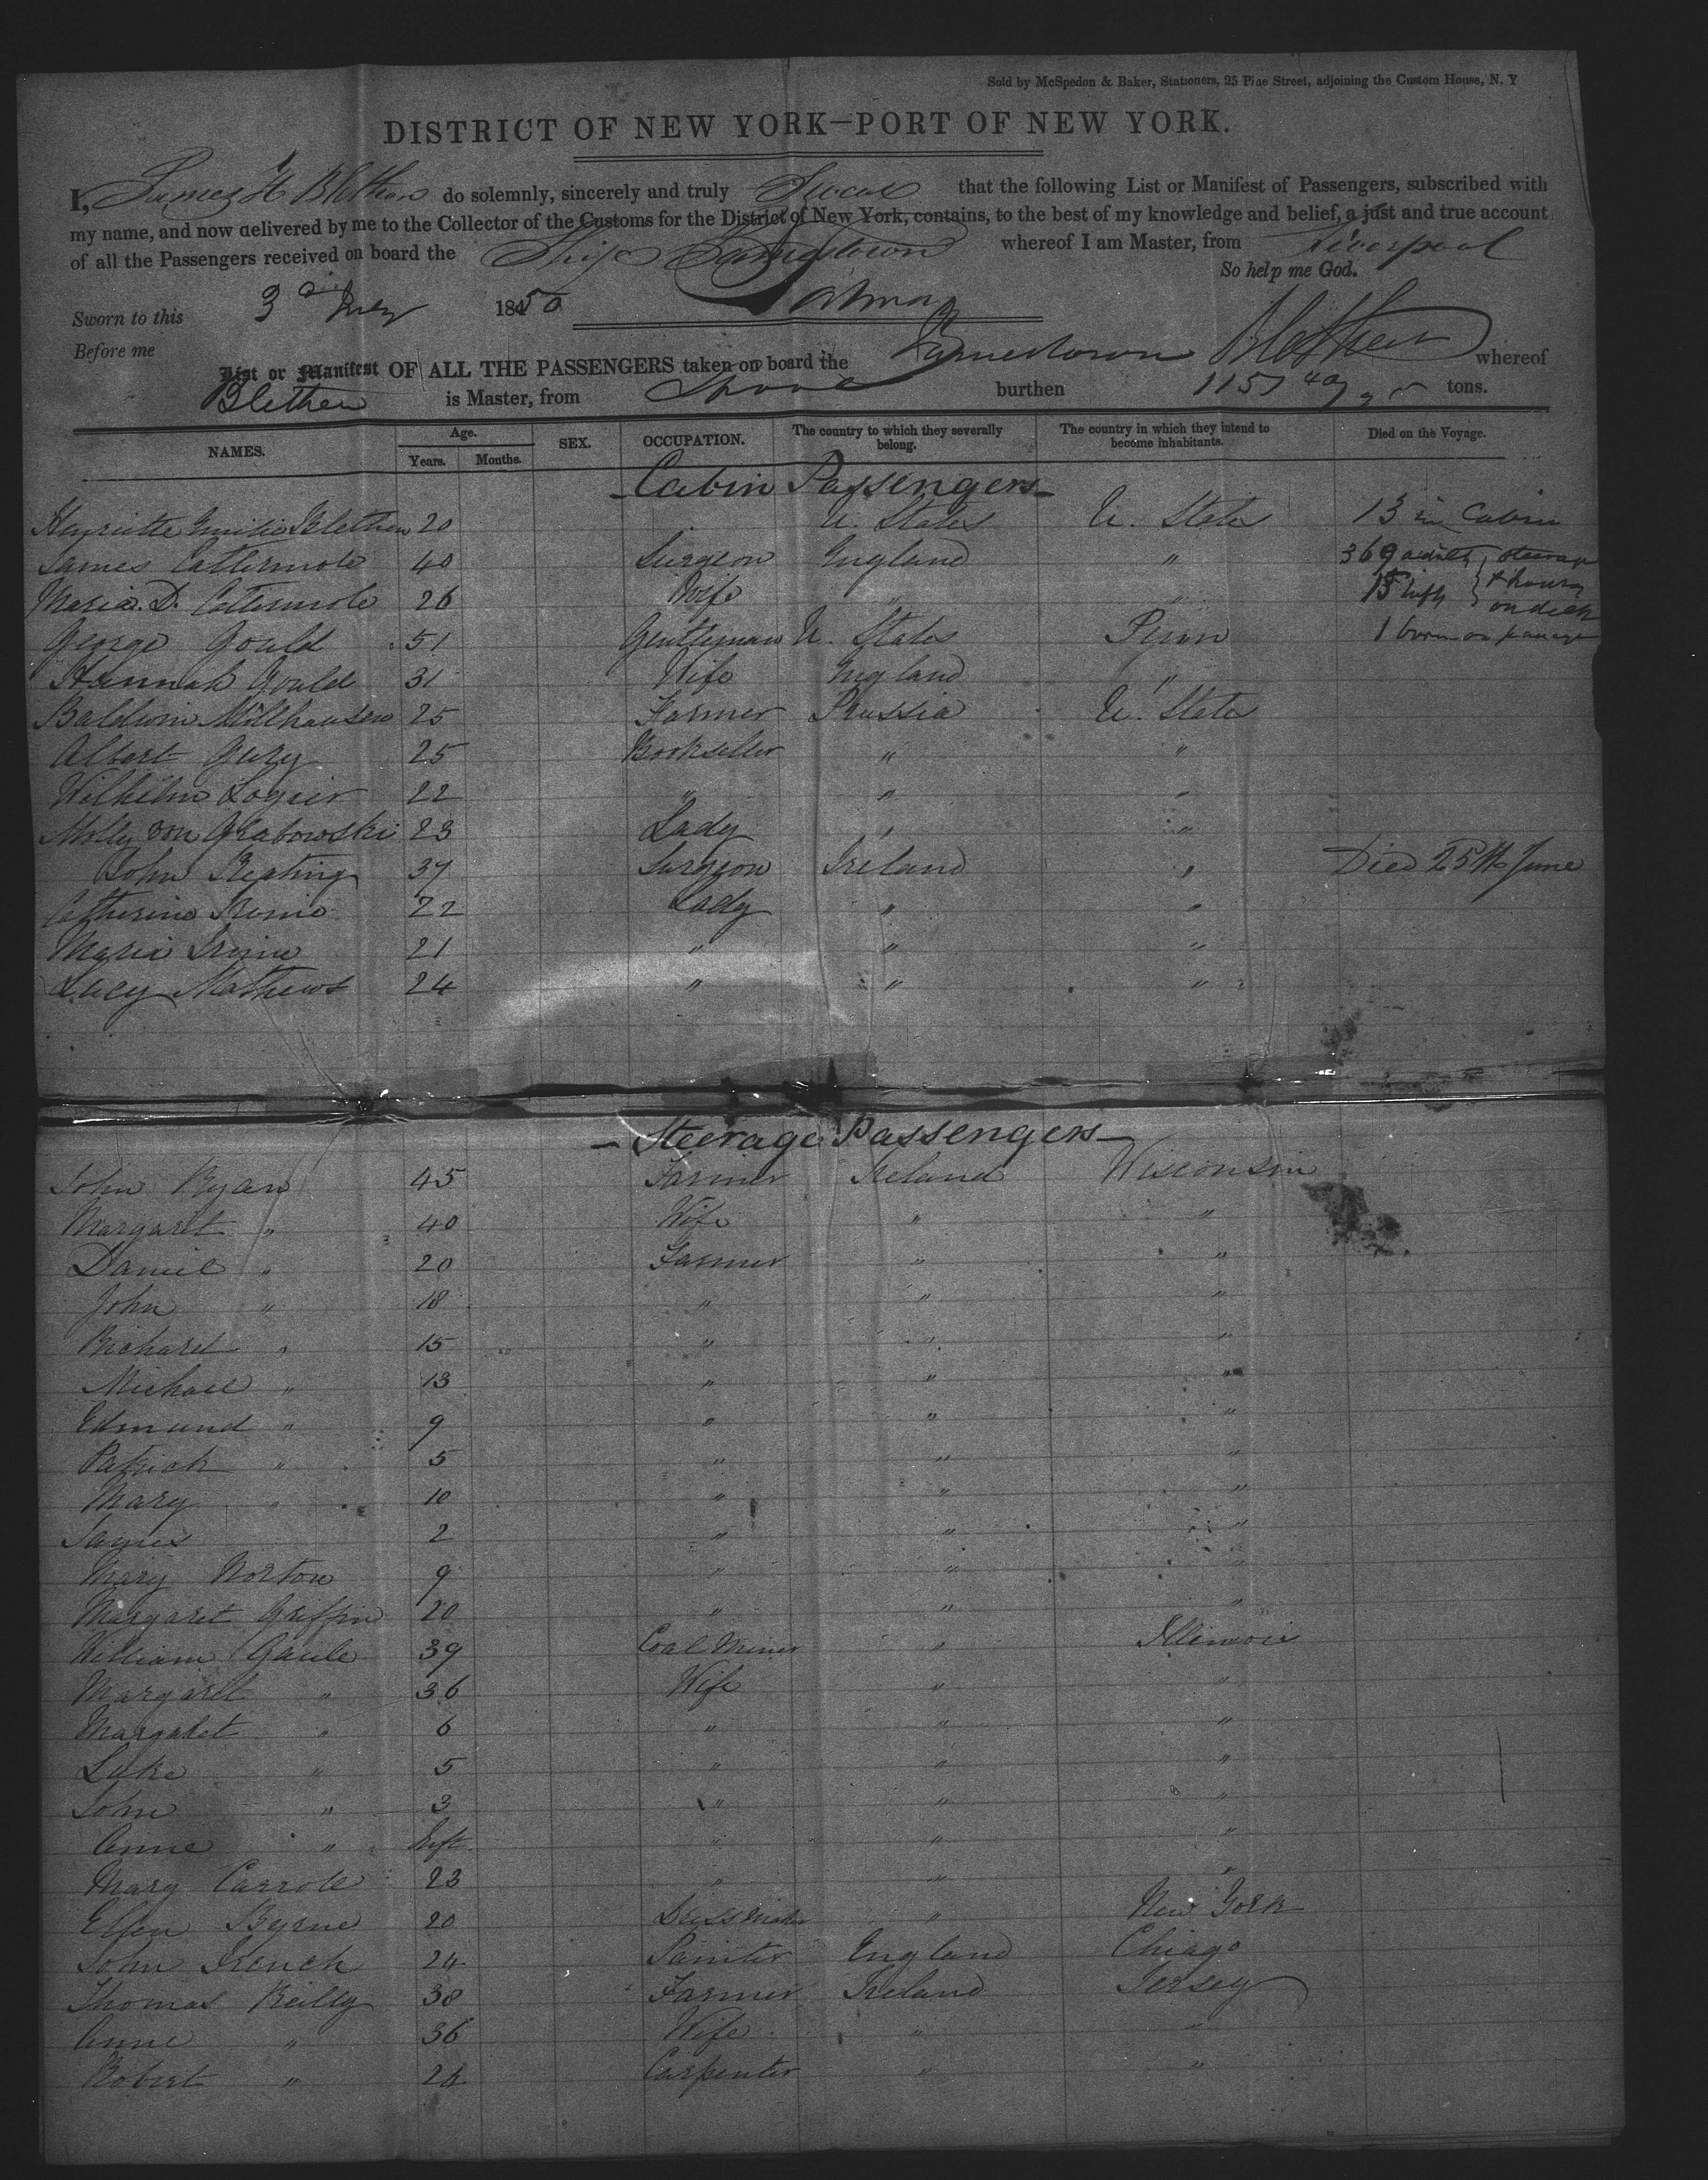 Sold by McSpedon & Baker, Stationers, 25 Pine Street, adjoining the Custom House, N. Y
DISTRICT OF NEW YORK—PORT OF NEW YORK.
I, James H Blethen do solemnly, sincerely and truly Swear that the following List or Manifest of Passengers, subscribed with
my name, and now delivered by me to the Collector of the Customs for the District of New York, contains, to the best of my knowledge and belief, a just and true account
of all the Passengers received on board the Ship Jamestown whereof I am Master, from Liverpool
So help me God.
Sworn to this 3d July 1850
Before me Blethen
List or Manifest OF ALL THE PASSENGERS taken on board the Jamestown whereof
Blethen is Master, from burthen 1151 tons.
NAMES. Age. Years. Months. SEX. OCCUPATION. The country to which they severally belong. The country in which they intend to become inhabitants. Died on the Voyage.
Cabin Passengers
Henriette Emilie Blethen 20 U. States U. States 13 in Cabin
James Cattermole 40 Surgeon England " 369 adults steerage
Maria. D. Cattermole 26 Wife " " 15 infts & house on deck
George Gould 51 Gentleman U. States 1 born on passage
Hannah Gould 31 Wife England "
Baldwin Möllhausen 25 Farmer Prussia U. States
Albert 25 Bookseller " "
Wilhelm Logier 22 " " "
Molly von Grabowski 23 Lady " "
John Keating 37 Surgeon Ireland " Died 25th June
Catherine 22 Lady " "
Maria 21 " " "
Lucy Mathews 24 " " "
Steerage Passengers
John Ryan 45 Farmer Ireland Wisconsin
Margaret " 40 Wife " "
Daniel " 20 Farmer " "
John " 18 " " "
Richard " 15 " " "
Michael " 13 " " "
Edmund " 9 " " "
Patrick " 5 " " "
Mary " 10 " " "
James 2 " " "
Mary Norton 9 " " "
Margaret Griffin 20 " " "
William Gaule 39 Coal Miner " Illinois
Margaret " 36 Wife " "
Margaret " 6 " " "
Luke " 5 " " "
John " 3 " " "
Anne " Inft. " " "
Mary Carroll 23 " " "
Ellen Byrne 20 Dressmaker " New York
John French 24 Painter England Chiago
Thomas Reilly 38 Farmer Ireland Jersey
Anne " 36 Wife " "
Robert " 24 Carpenter " "